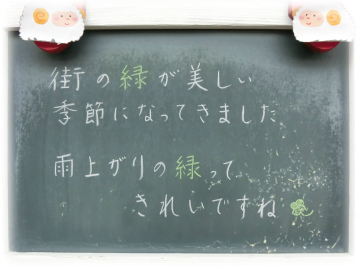 街の緑が美しい
季節になってきました
雨上がりの緑って、
きれいですね